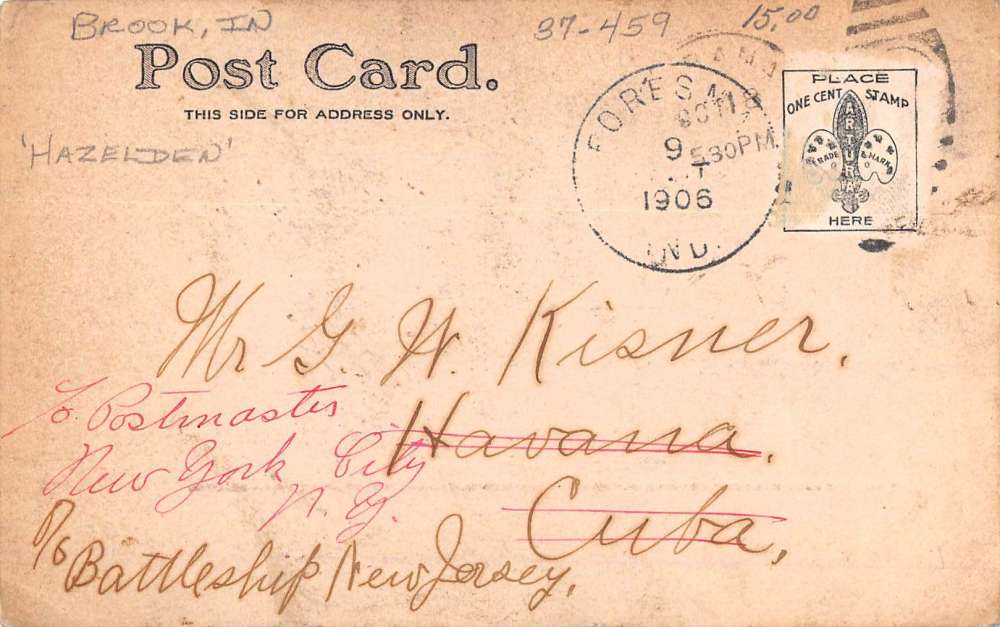 BROOK, IN
37-459
15.00
Post Card.
THIS SIDE FOR ADDRESS ONLY.
'HAZELDEN'
FORESM
9
530 PM.
1906
IND.
PLACE
ONE CENT STAMP
ARTURA
TRADE MARK
HERE
Mr G. W. Kisner,
Havana,
Cuba,
℅ Postmaster
New York City
N. Y.
℅ Battleship New Jersey,